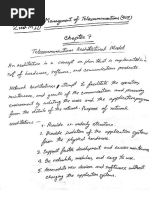 Management of Telecommunications (805)
2nd M
Chapter 7
Telecommunication Architectural Model
An architecture is a concept or plan that is implemented in
of hardware, software, and communications products
Network architectures attempt to facilitate the operation,
maintenance, and growth of the communication and processing
environment by isolating the user and the application from
the details of the network. Purpose of network
architectures
1. Provide an orderly structure
2. Provide isolation of the application system
from the physical hardware.
3. Support flexible development and easier maintenance
4. Be reliable, modular, and easy to use.
5. Accomodate new devices and software without
changing the application system.